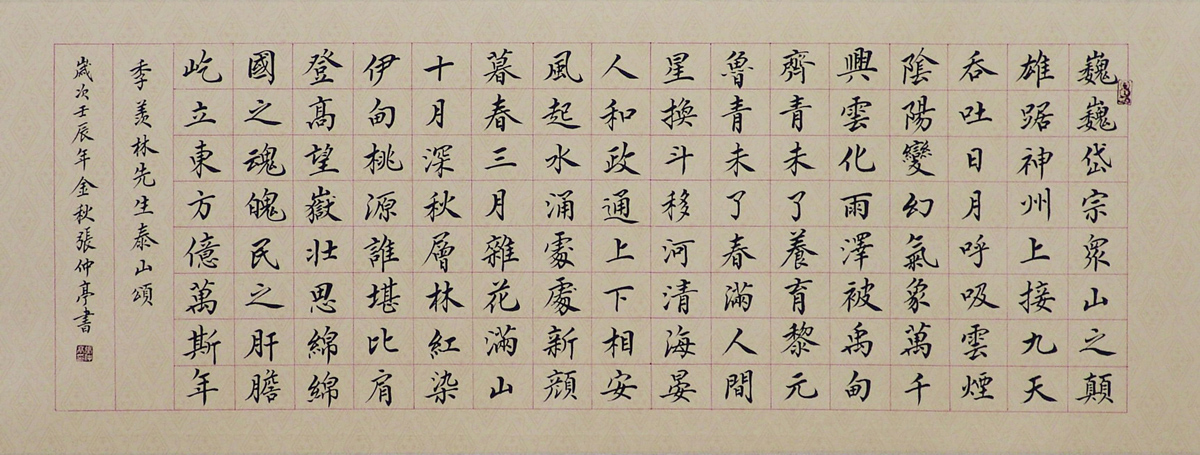 巍巍岱宗眾山之顛
雄踞神州上接九天
吞吐日月呼吸雲煙
陰陽變幻氣象萬千
興雲化雨澤被禹甸
齊青未了養育黎元
魯青未了春滿人間
星換斗移河清海晏
人和政通上下相安
風起水涌處處新顏
暮春三月雜花滿山
十月深秋層林紅染
伊甸桃源誰堪比肩
登高望嶽壯思綿綿
國之魂魄民之肝膽
屹立東方億萬斯年
季羨林先生泰山頌
歲次壬辰年金秋張仲亭書